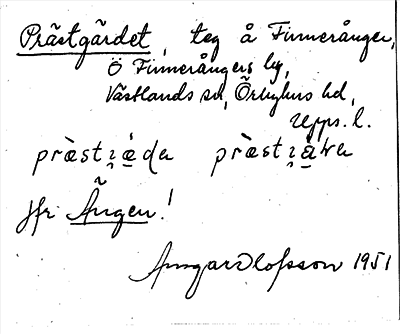 Prästgärdet, teg å Finnerånger,
Ö Finnerångers by,
Västlands sn, Örbyhus hd,
Upps. l.
prὰstı̯ạ́da prὰstı̯ạ̊̀ka
jfr Ängen!
Ansgar Olofsson 1951